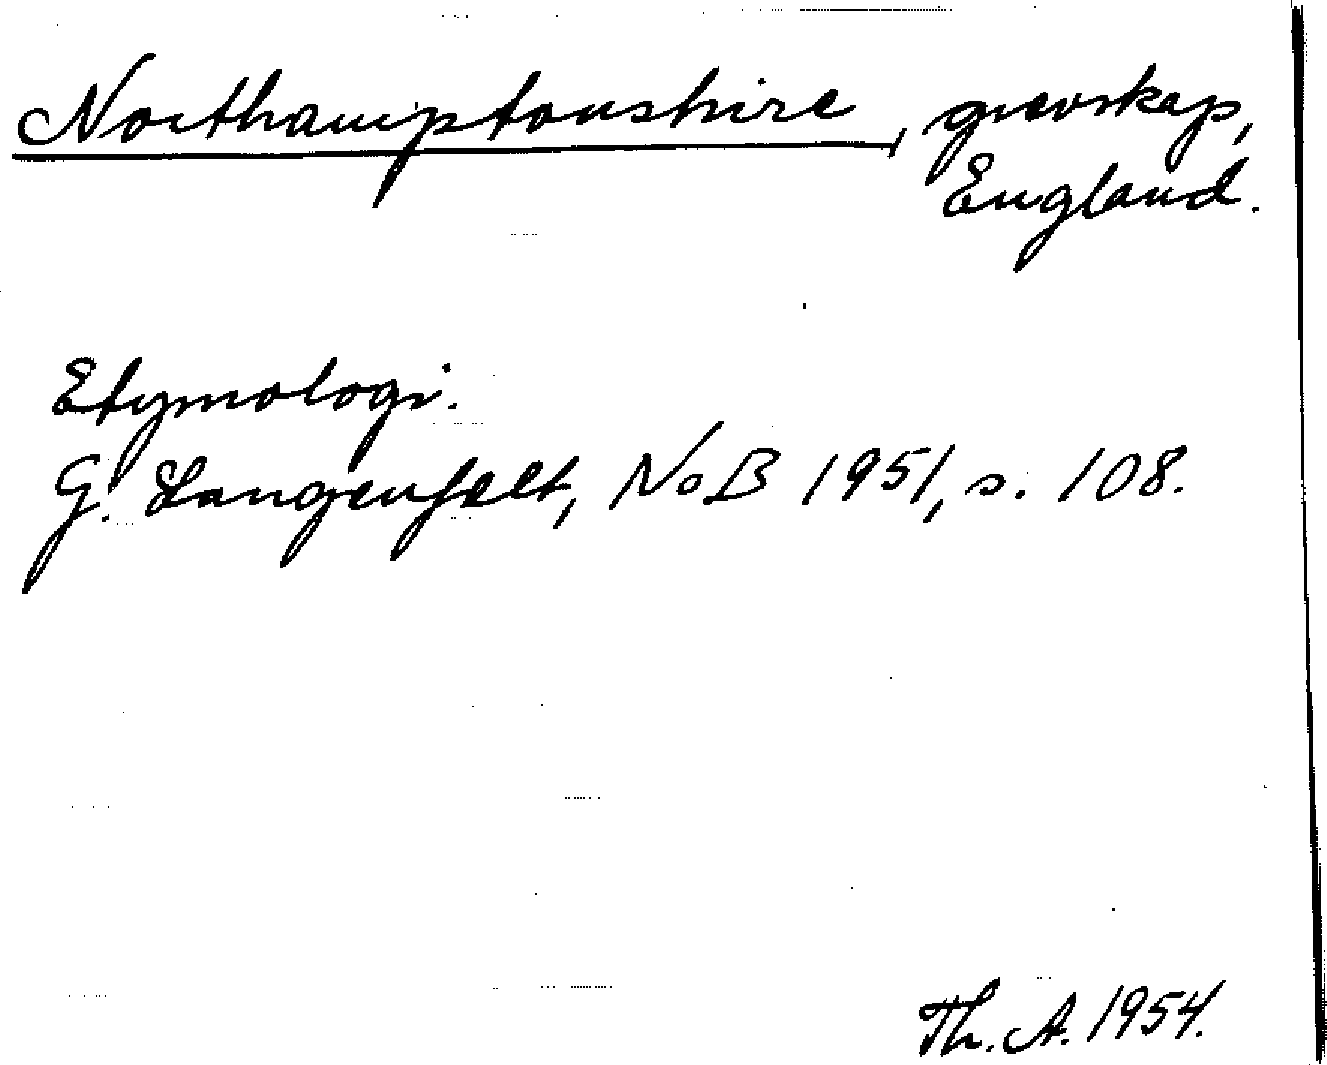 Northamptonshire, grevskap,
England.
Etymologi.
G. Langenfelt, NoB 1951, s. 108.
Th. A. 1954.